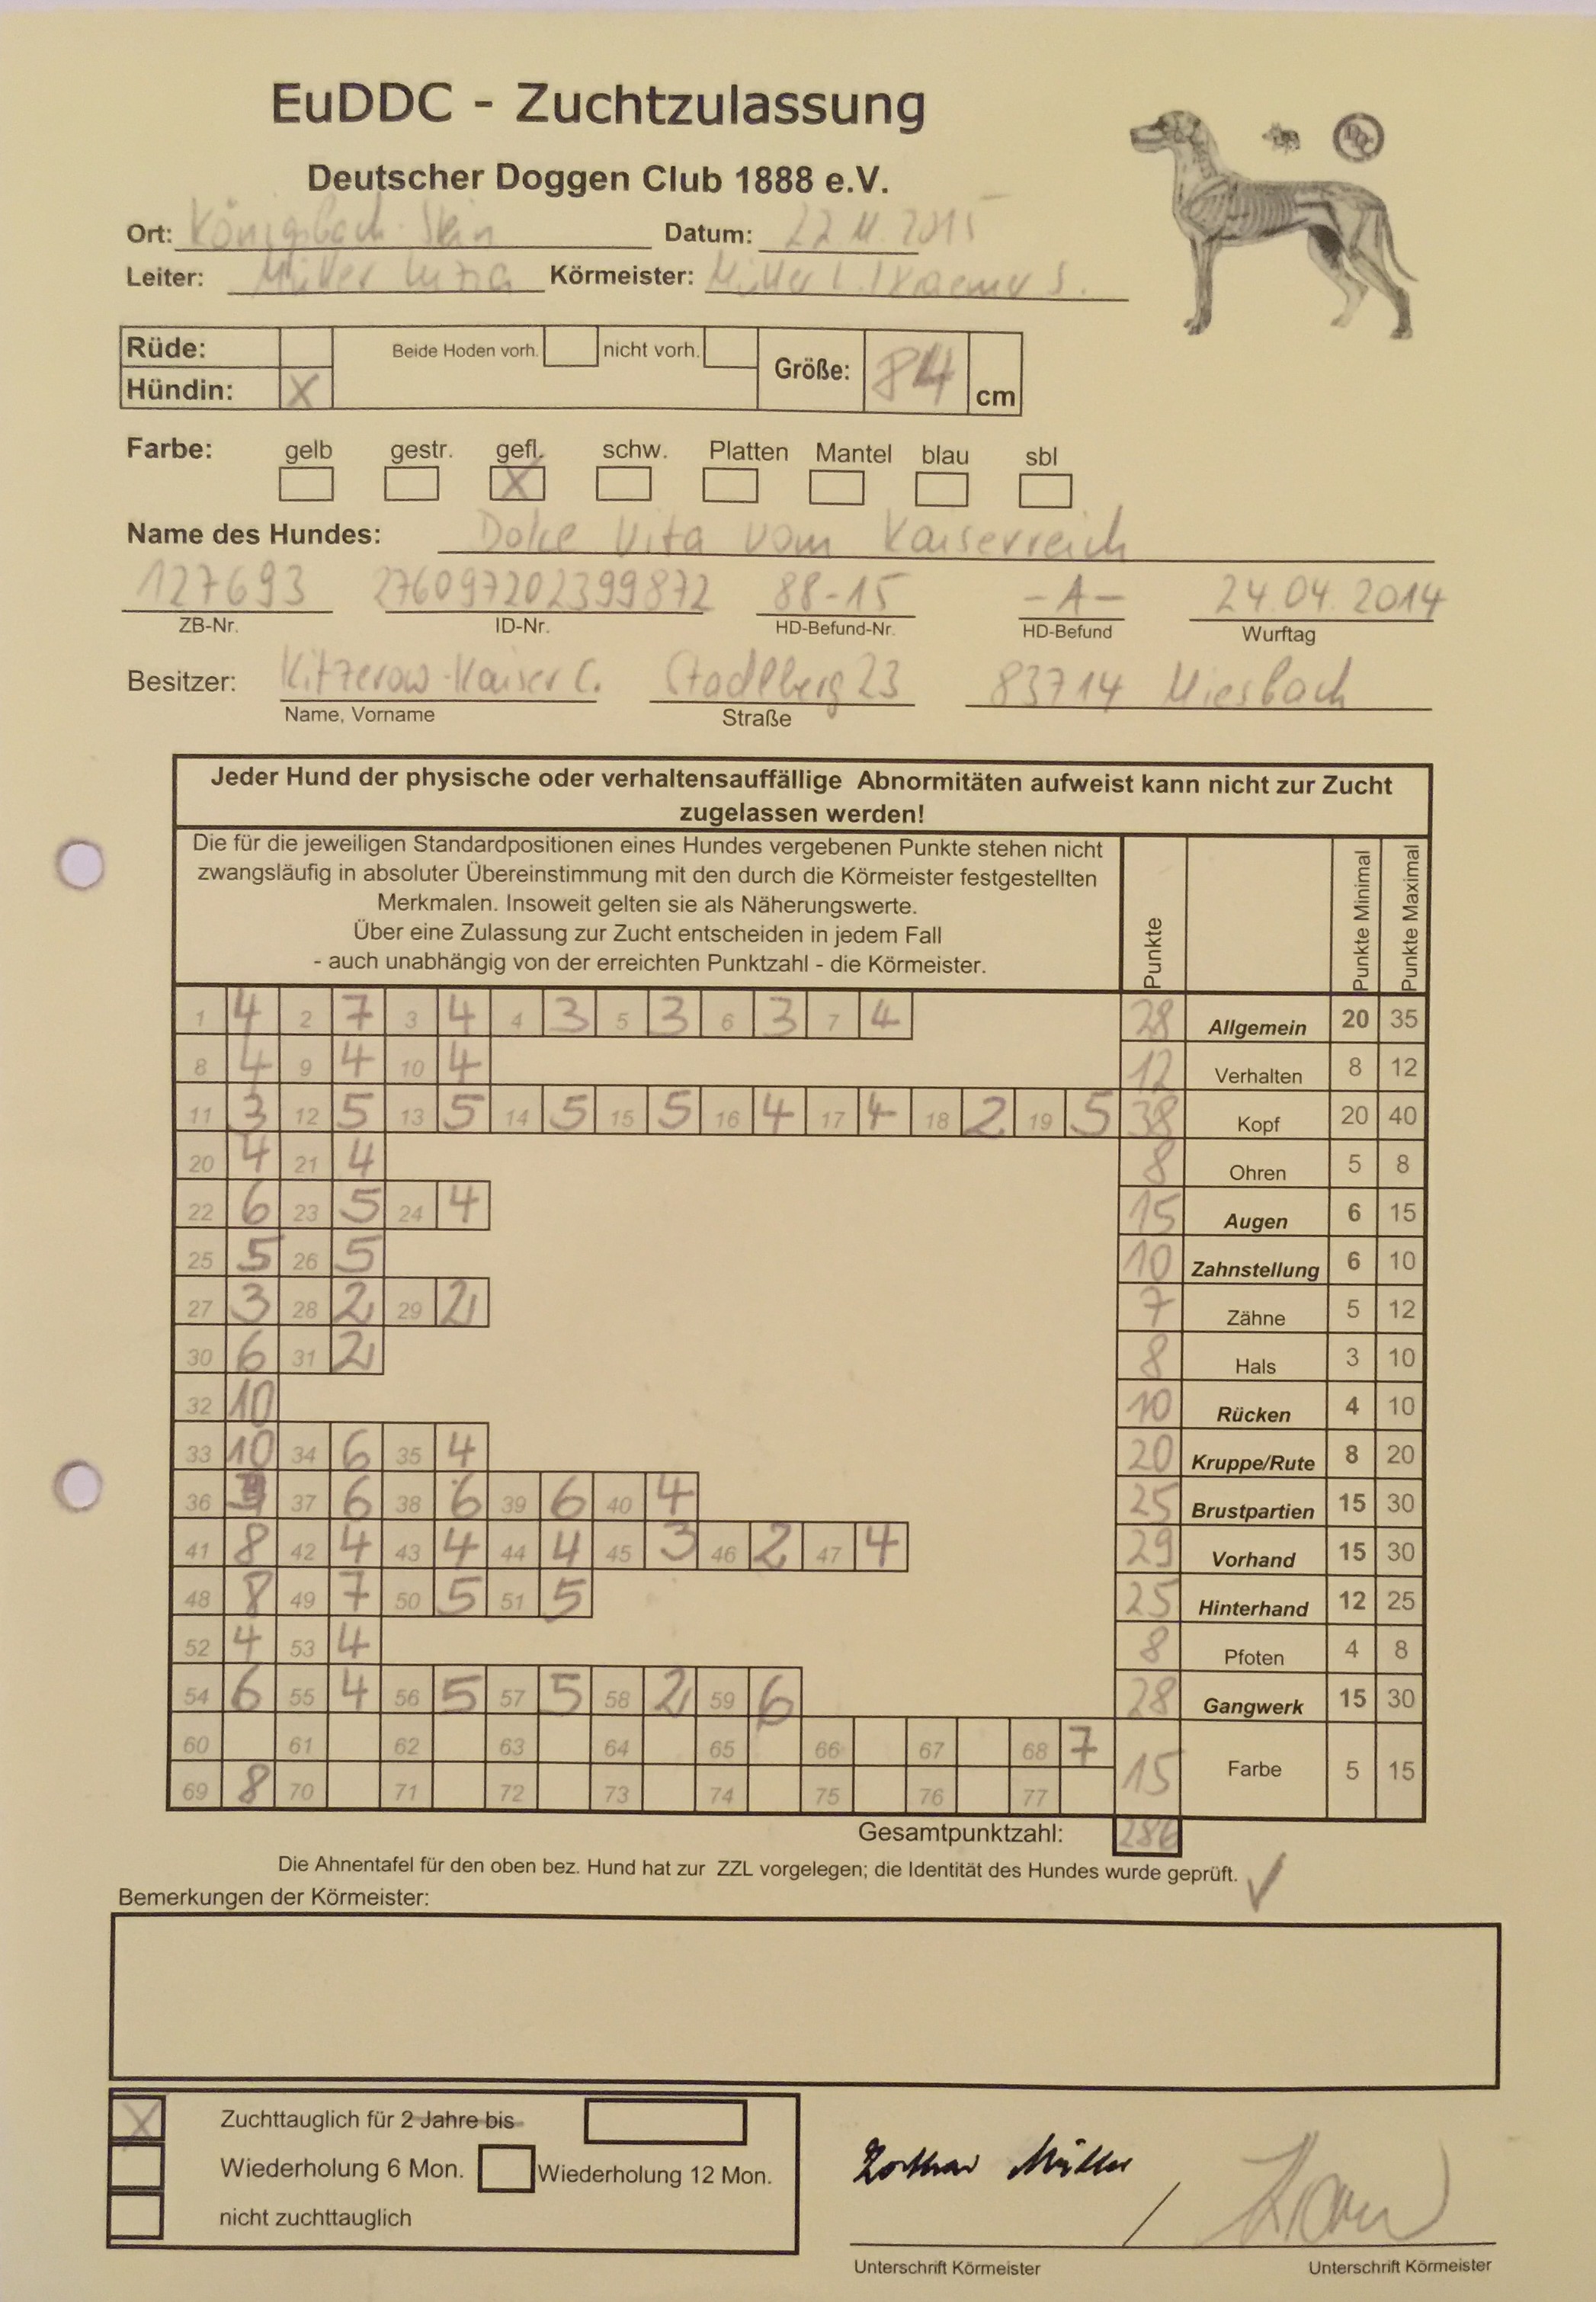 EuDDC - Zuchtzulassung
Deutscher Doggen Club 1888 e.V.
Ort: Königsbach-Stein Datum: 22.11.2015
Leiter: Müller Luzia Körmeister: Müller L. / Kraemer S.
Rüde: Beide Hoden vorh. nicht vorh. Größe: 84 cm
Hündin: X
Farbe: gelb gestr. gefl. schw. Platten Mantel blau sbl
X
Name des Hundes: Dolce Vita vom Kaiserreich
127693 276097202399872 88-15 -A- 24.04.2014
ZB-Nr. ID-Nr. HD-Befund-Nr. HD-Befund Wurftag
Besitzer: Kitzerow-Kaiser C. Stadlberg 23 83714 Miesbach
Name, Vorname Straße
Jeder Hund der physische oder verhaltensauffällige Abnormitäten aufweist kann nicht zur Zucht
zugelassen werden!
Die für die jeweiligen Standardpositionen eines Hundes vergebenen Punkte stehen nicht
zwangsläufig in absoluter Übereinstimmung mit den durch die Körmeister festgestellten
Merkmalen. Insoweit gelten sie als Näherungswerte.
Über eine Zulassung zur Zucht entscheiden in jedem Fall
- auch unabhängig von der erreichten Punktzahl - die Körmeister.
Punkte Punkte Minimal Punkte Maximal
1 4 2 7 3 4 4 3 5 3 6 3 7 4 28 Allgemein 20 35
8 4 9 4 10 4 12 Verhalten 8 12
11 3 12 5 13 5 14 5 15 5 16 4 17 4 18 2 19 5 38 Kopf 20 40
20 4 21 4 8 Ohren 5 8
22 6 23 5 24 4 15 Augen 6 15
25 5 26 5 10 Zahnstellung 6 10
27 3 28 2 29 2 7 Zähne 5 12
30 6 31 2 8 Hals 3 10
32 10 10 Rücken 4 10
33 10 34 6 35 4 20 Kruppe/Rute 8 20
36 37 6 38 6 39 6 40 4 25 Brustpartien 15 30
41 8 42 4 43 4 44 4 45 3 46 2 47 4 29 Vorhand 15 30
48 8 49 7 50 5 51 5 25 Hinterhand 12 25
52 4 53 4 8 Pfoten 4 8
54 6 55 4 56 5 57 5 58 2 59 6 28 Gangwerk 15 30
60 61 62 63 64 65 66 67 68 7 15 Farbe 5 15
69 8 70 71 72 73 74 75 76 77
Gesamtpunktzahl: 286
Die Ahnentafel für den oben bez. Hund hat zur ZZL vorgelegen; die Identität des Hundes wurde geprüft. ✓
Bemerkungen der Körmeister:
X Zuchttauglich für 2 Jahre bis
Wiederholung 6 Mon. Wiederholung 12 Mon.
nicht zuchttauglich
Lothar Müller /
Unterschrift Körmeister Unterschrift Körmeister